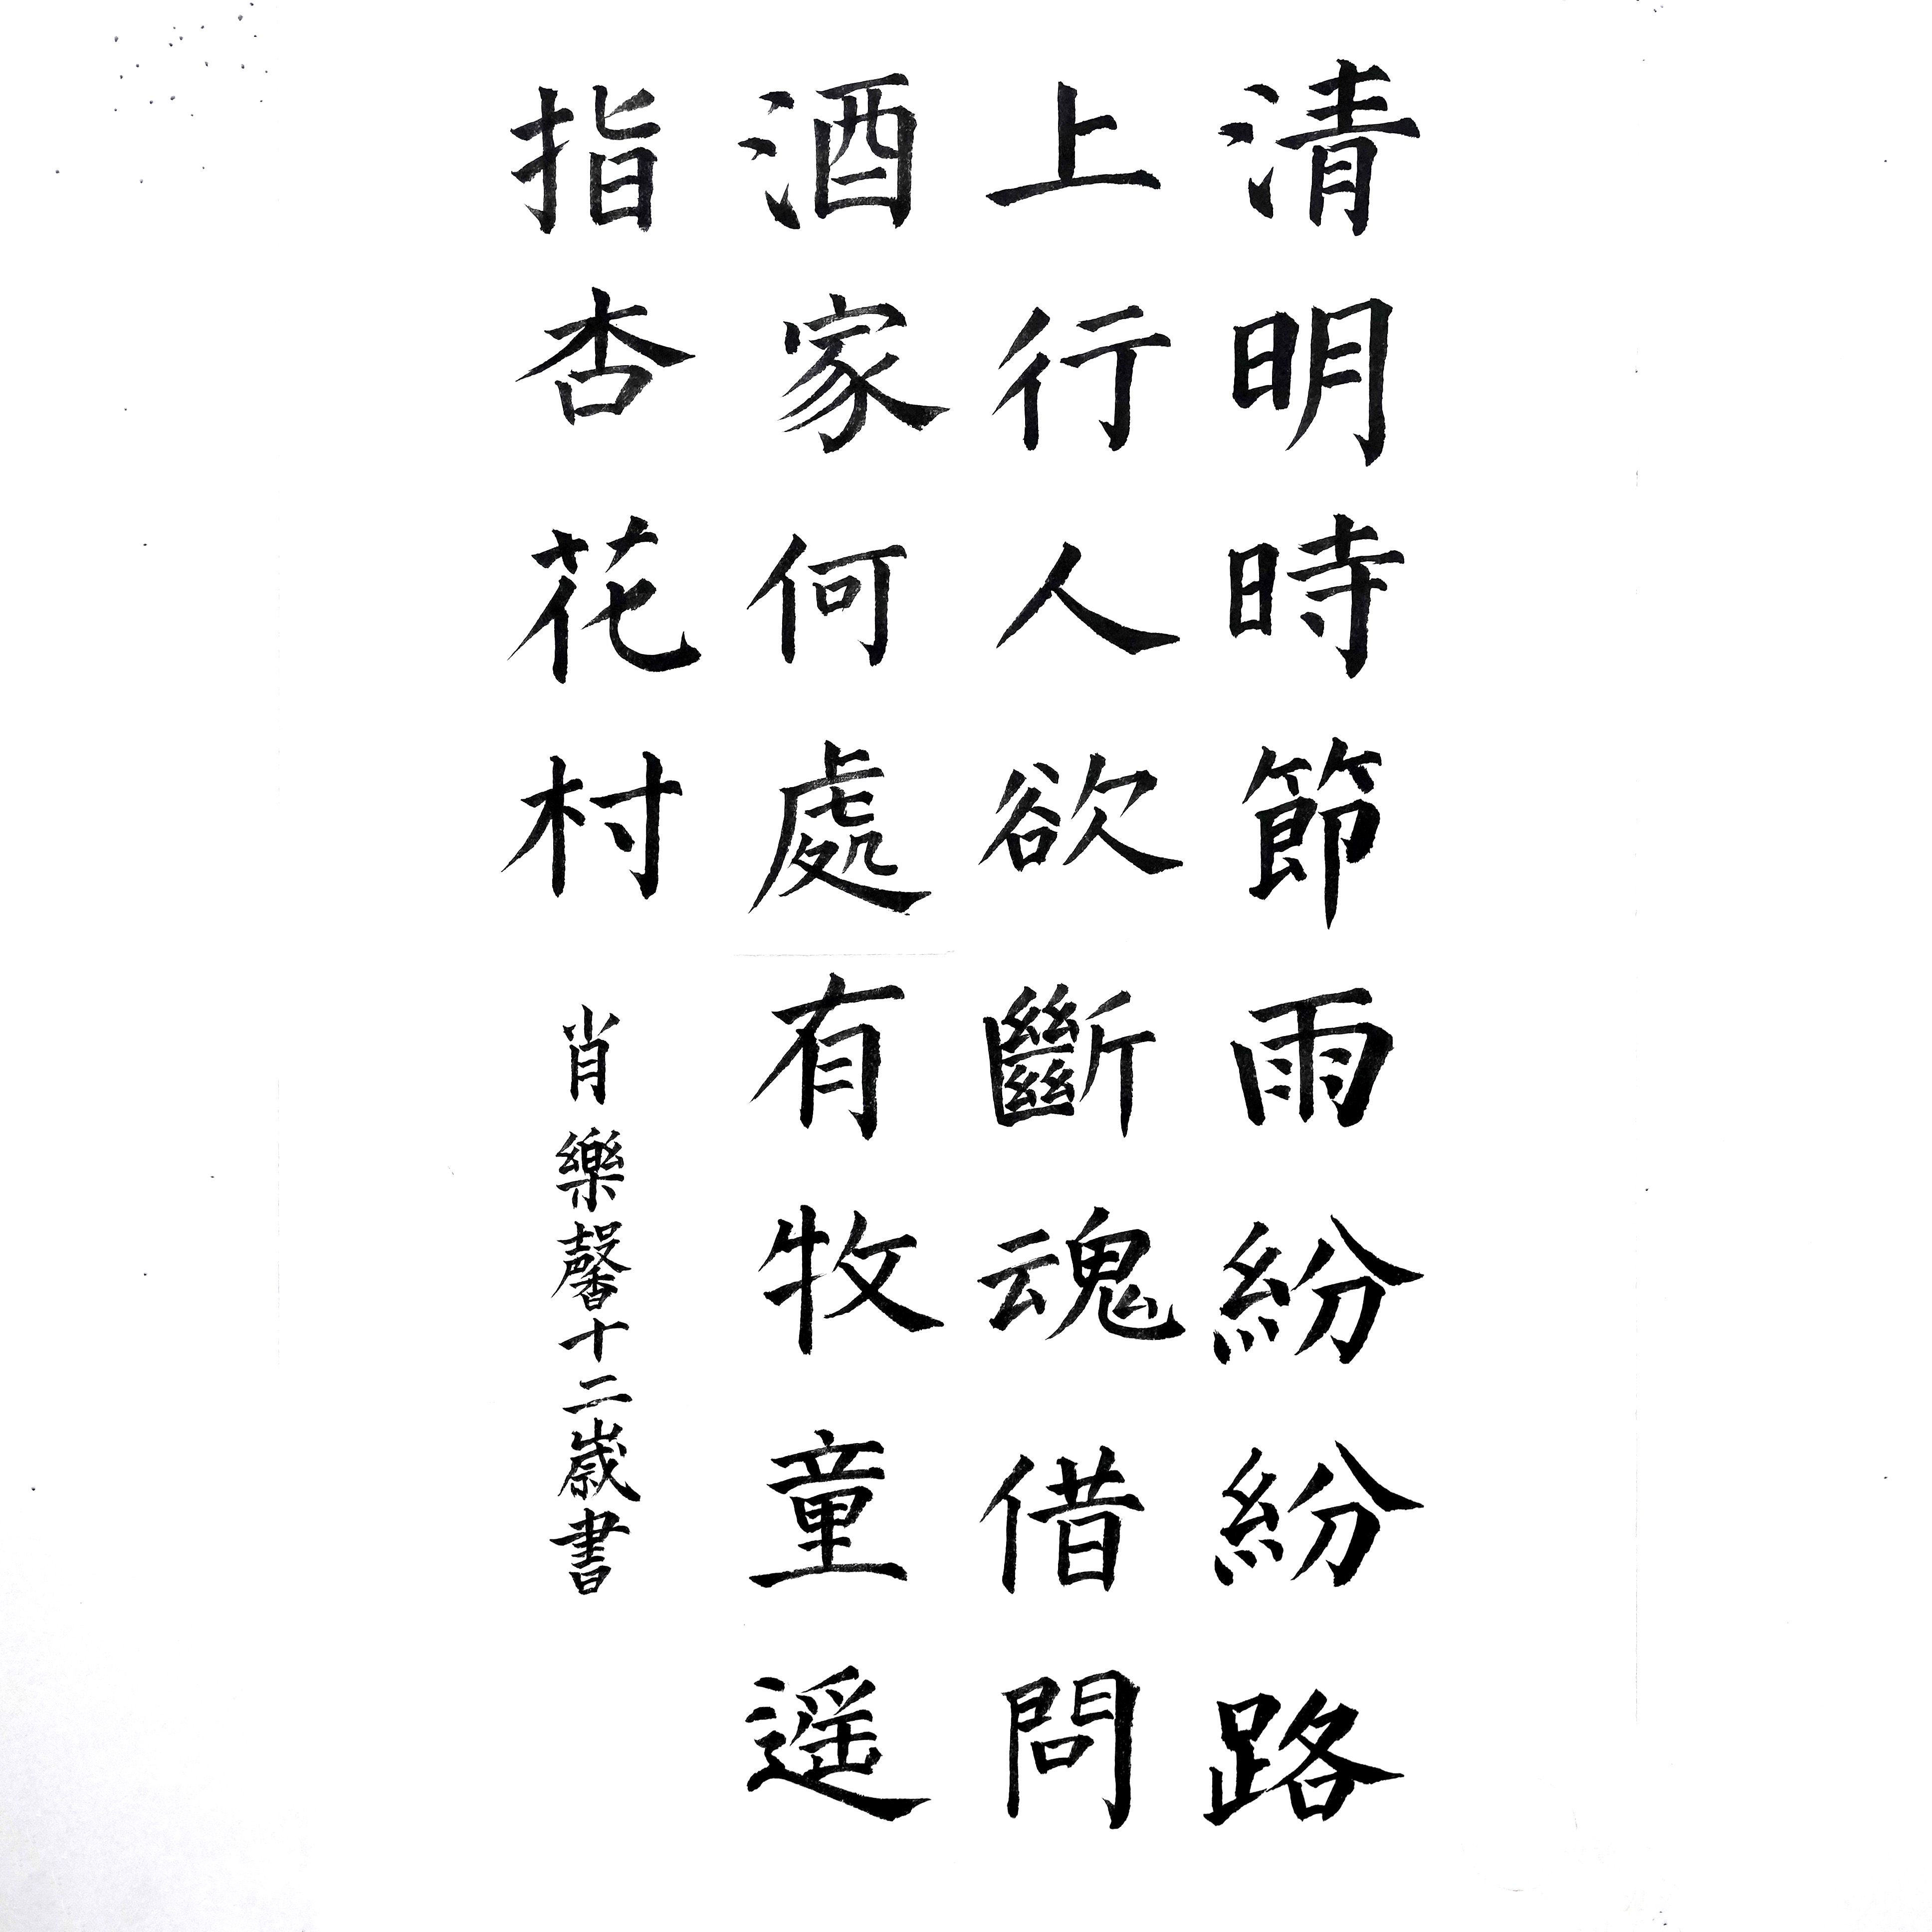 清明時節雨紛紛路
上行人欲斷魂借問
酒家何處有牧童遥
指杏花村
肖樂馨十二歲書